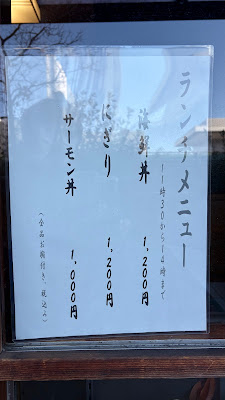 ランチメニュー
11時30から14時まで
海鮮丼 1,200円
にぎり 1,200円
サーモン丼 1,000円
(全品お椀付き、税込み)